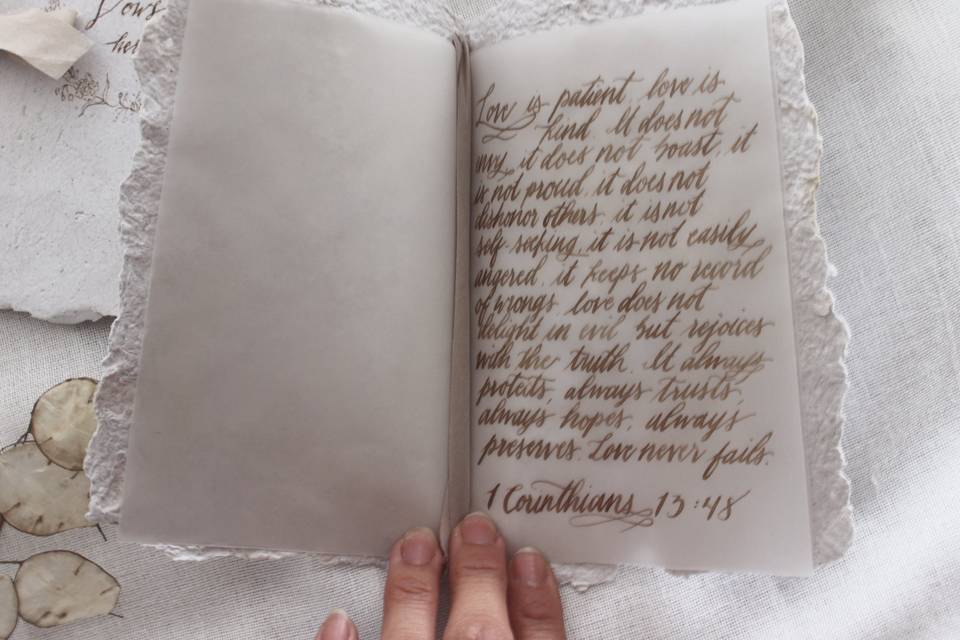 Vows
her
Love is patient, love is
kind. It does not
envy, it does not boast, it
is not proud, it does not
dishonor others, it is not
self-seeking, it is not easily
angered, it keeps no record
of wrongs, love does not
delight in evil but rejoices
with the truth. It always
protects, always trusts,
always hopes, always
preserves. Love never fails.
1 Corinthians 13:48